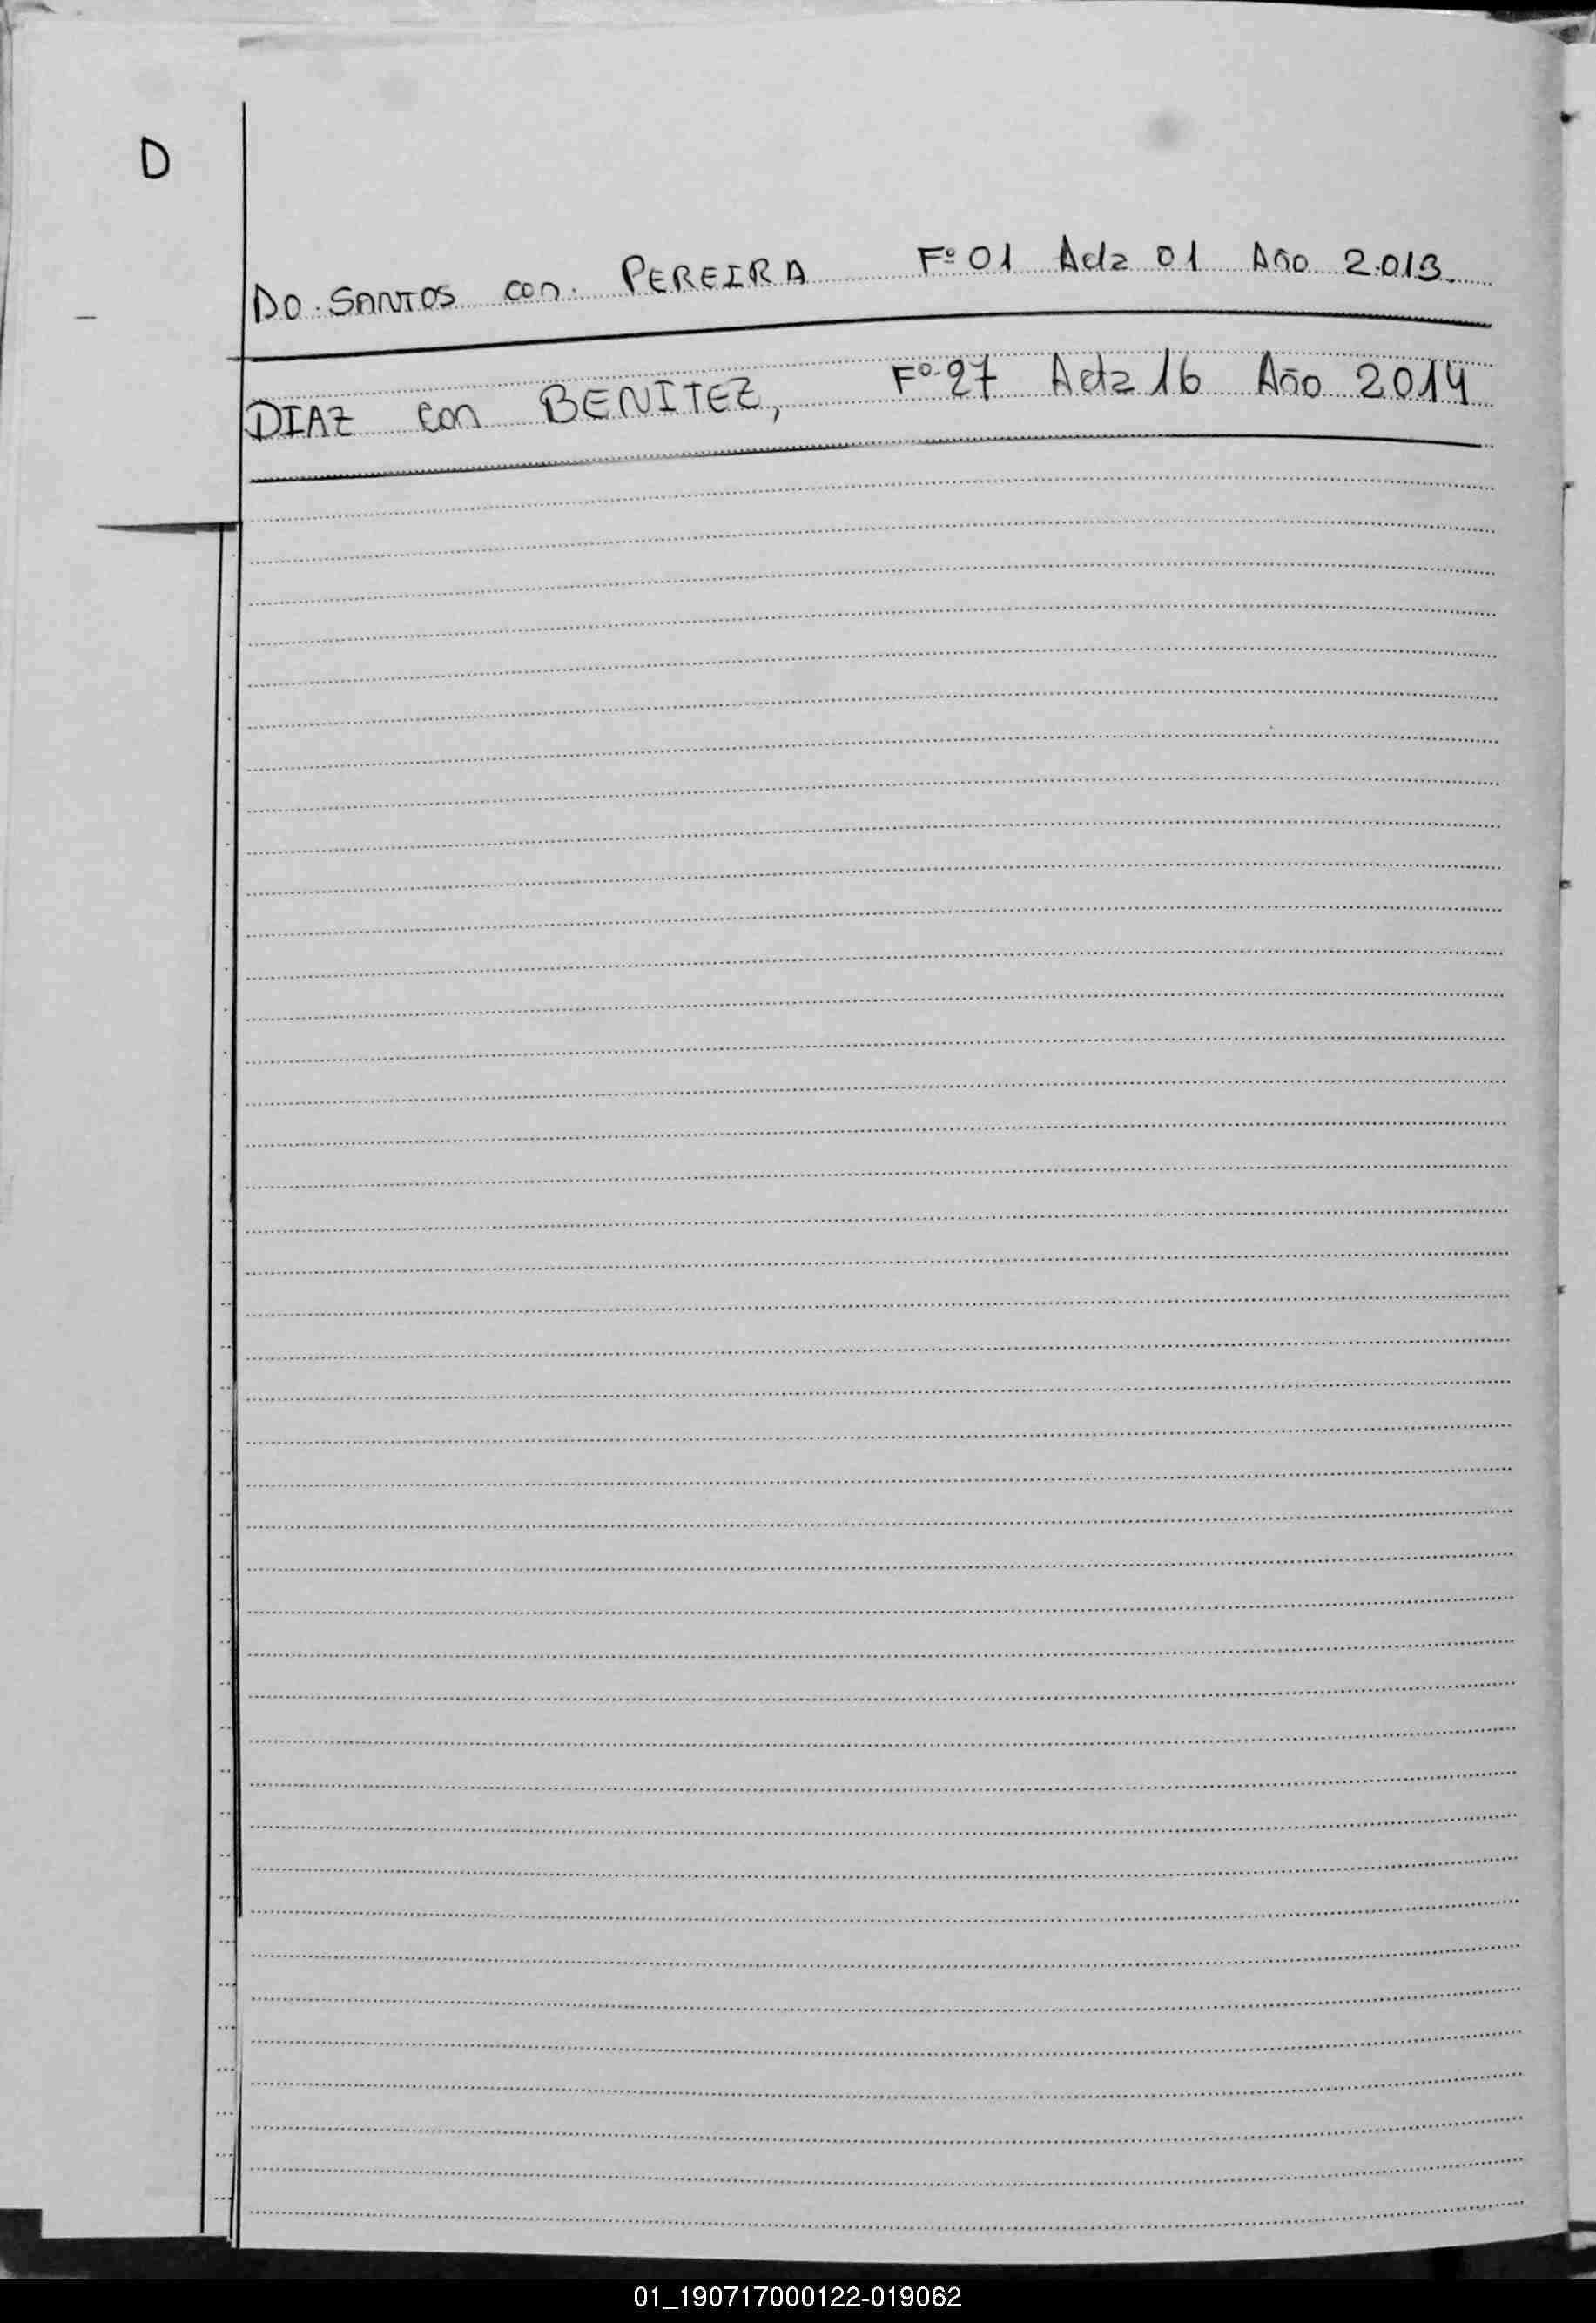 D
DO SANTOS con PEREIRA Fº 01 Acta 01 Año 2.013.
DIAZ con BENITEZ, Fº 27 Acta 16 Año 2014
01_190717000122-019062